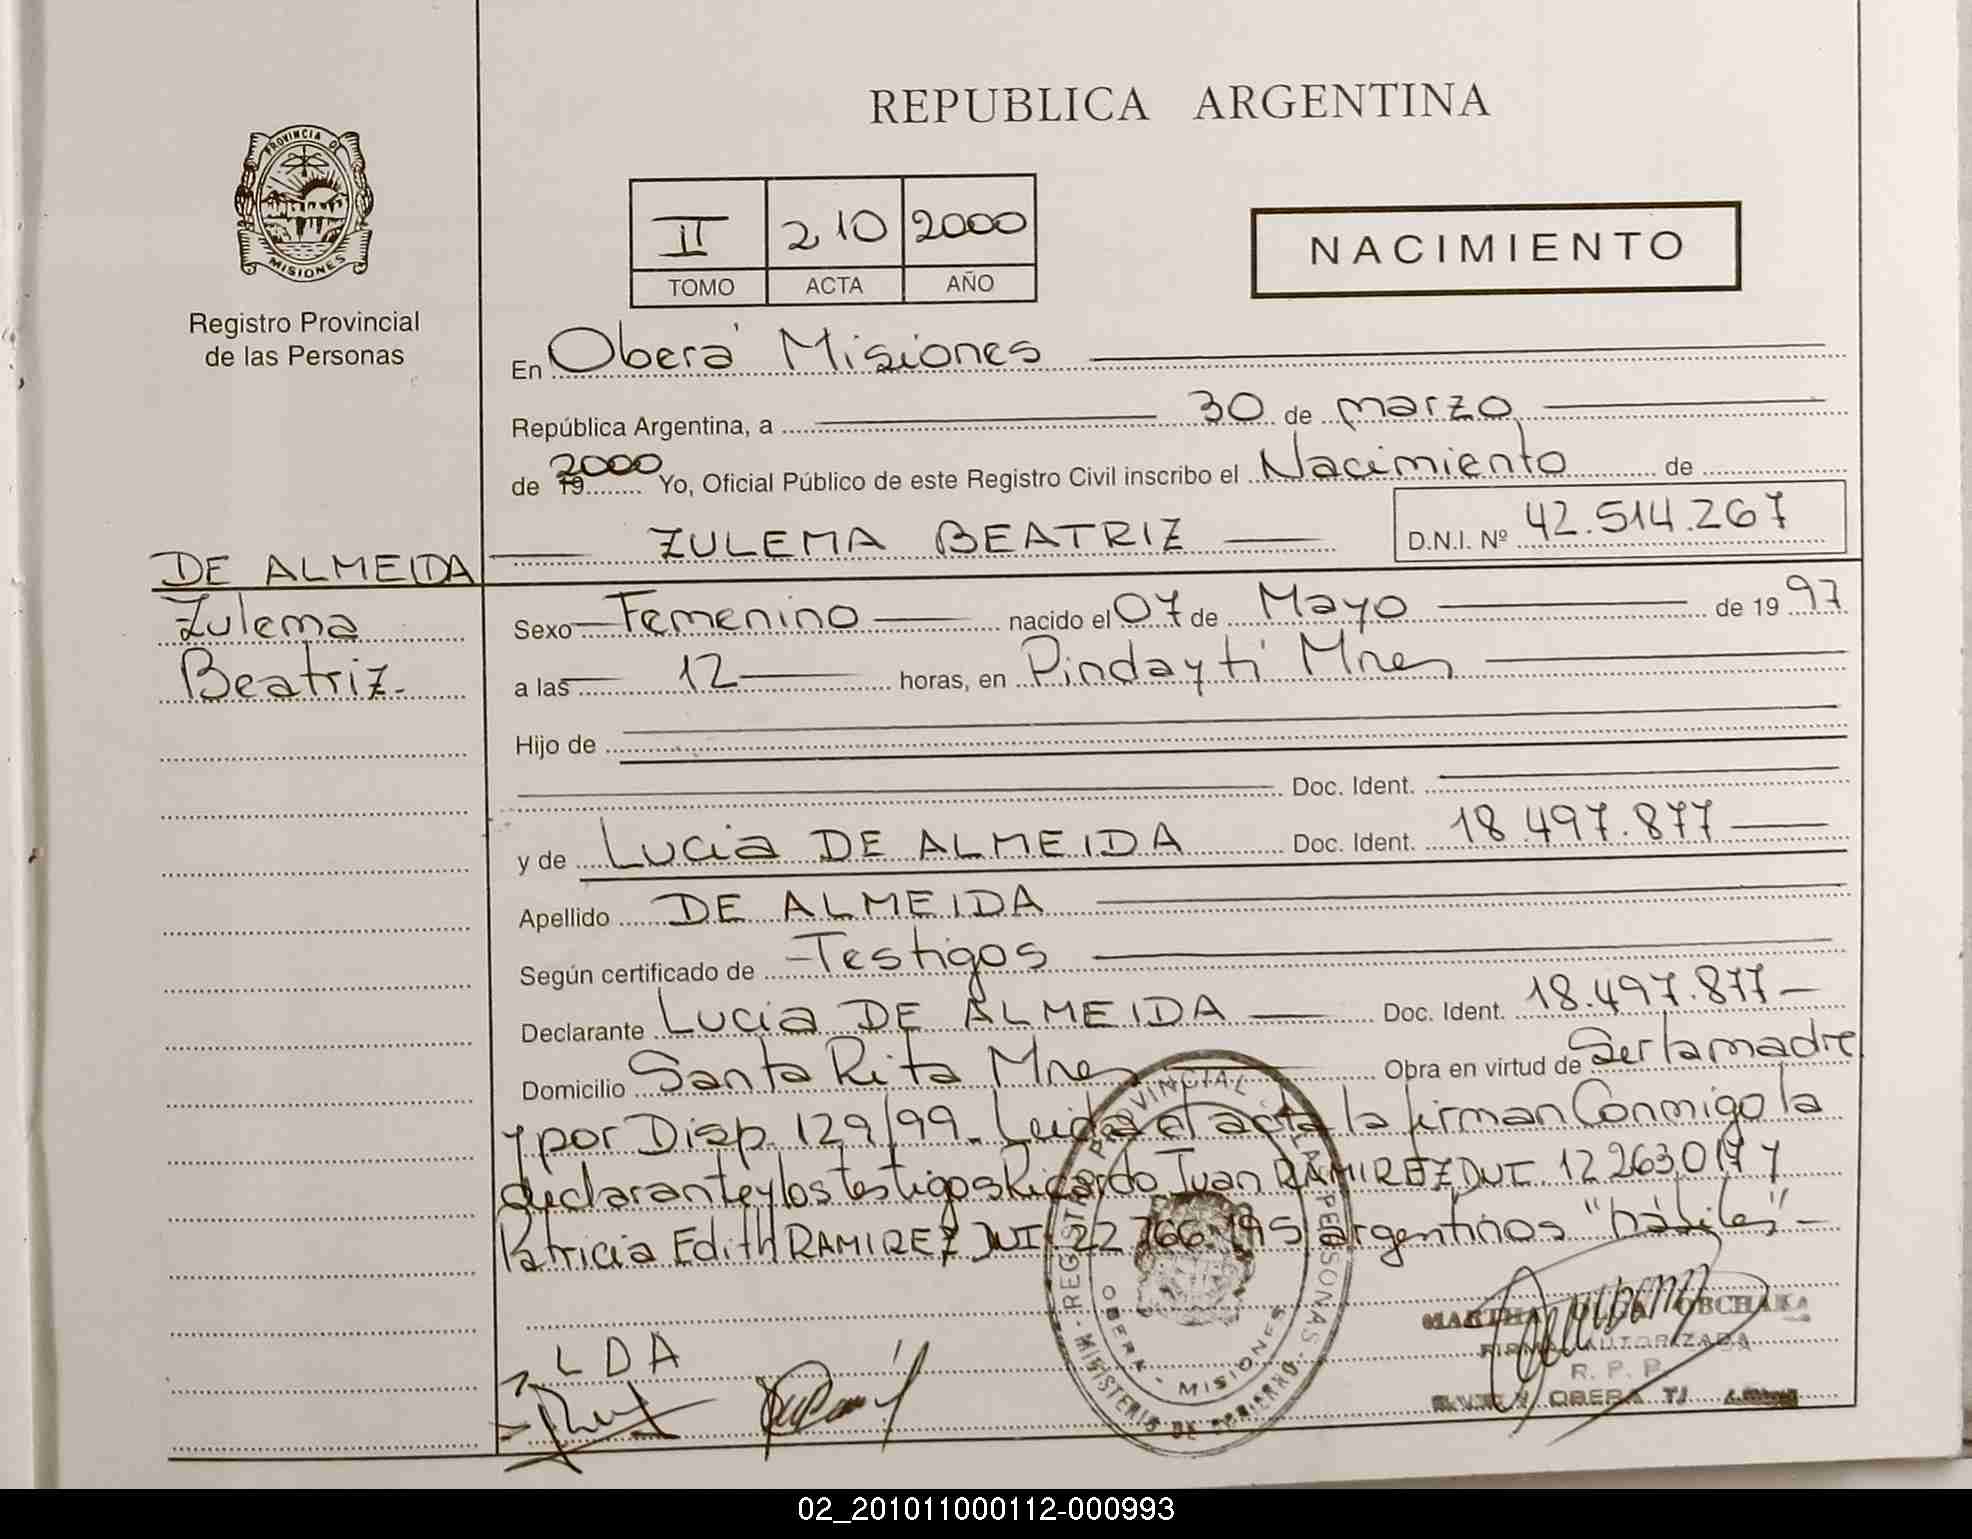 REPUBLICA ARGENTINA
PROVINCIA D
MISIONES
Registro Provincial
de las Personas
II 210 2000
TOMO ACTA AÑO
NACIMIENTO
En Oberá Misiones
República Argentina, a 30 de marzo
de 19 2000 Yo, Oficial Público de este Registro Civil inscribo el Nacimiento de
ZULEMA BEATRIZ D.N.I. Nº 42.514.267
DE ALMEIDA
Zulema
Beatriz.
Sexo Femenino nacido el 07 de Mayo de 19 97
a las 12 horas, en Pindaytí Mnes
Hijo de
Doc. Ident.
y de Lucia DE ALMEIDA Doc. Ident. 18.497.877
Apellido DE ALMEIDA
Según certificado de Testigos
Declarante Lucia DE ALMEIDA Doc. Ident. 18.497.877
Domicilio Santa Rita Mnes Obra en virtud de Ser la madre
y por Disp. 129/99. Leida el acta la firman Conmigo la
declarante y los testigos Ricardo Juan RAMIREZ DNI y
Patricia Edith RAMIREZ DNI argentinos "hábiles"
LDA
REGISTRO PROVINCIAL DE LAS PERSONAS
OBERA - MISIONES
MINISTERIO DE GOBIERNO
MARTHA OLGA OBCHAKA
FIRMA AUTORIZADA
R. P. P
OBERA
02_201011000112-000993